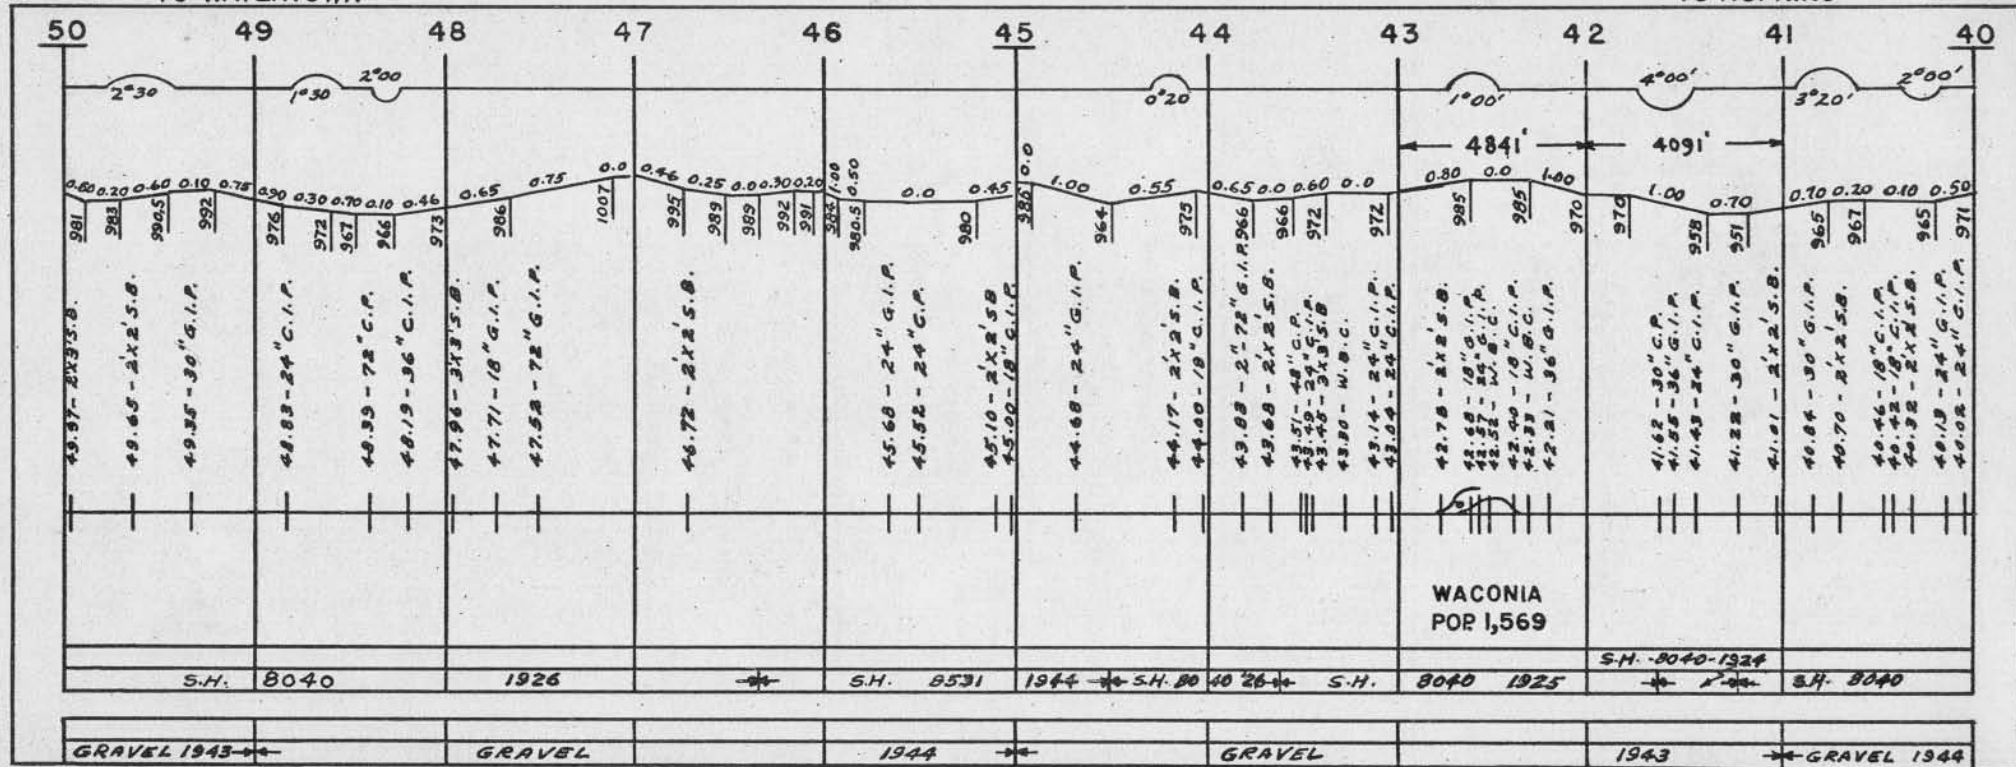 50 49 48 47 46 45 44 43 42 41 40
2°30 1°30 2°00 0°20 1°00' 4°00' 3°20' 2°00'
4841' 4091'
0.60 0.20 0.60 0.10 0.75 0.90 0.30 0.70 0.10 0.46 0.65 0.75 0.0 0.46 0.25 0.0 0.30 0.20 1.00 0.50 0.0 0.45 0.0 1.00 0.55 0.65 0.0 0.60 0.0 0.80 0.0 1.00 1.00 0.70 0.70 0.20 0.10 0.50
981 983 990.5 992 976 972 967 966 973 986 1007 995 989 989 992 991 984 980.5 980 986 964 975 966 966 972 972 985 985 970 970 958 951 965 967 965 971
49.97-2'X3'S.B.
49.65-2'X2'S.B.
49.35-30"G.I.P.
48.83-24"C.I.P.
48.39-72"C.P.
48.19-36"C.I.P.
47.96-3X3'S.B.
47.71-18"G.I.P.
47.52-72"G.I.P.
46.72-2X2'S.B.
45.68-24"G.I.P.
45.52-24"C.P.
45.10-2'X2'S.B
45.00-18"C.I.P.
44.68-24"G.I.P.
44.17-2X2'S.B.
44.00-18"C.I.P.
43.83-2"-72"G.I.P.
43.68-2'X2'S.B.
43.51-48"C.P.
43.49-24"C.I.P.
43.45-3X3'S.B
43.30-W.B.C.
43.14-24"C.I.P.
43.04-24"C.I.P.
42.78-2X2'S.B.
42.63-18"G.I.P.
42.57-24"G.I.P.
42.52-W.B.C.
42.40-18"C.I.P.
42.33-W.B.C.
42.21-36"G.I.P.
41.62-30"C.P.
41.55-36"G.I.P.
41.43-24"C.I.P.
41.22-30"G.I.P.
41.01-2'X2'S.B.
40.84-30"G.I.P.
40.70-2'X2'S.B.
40.46-18"C.I.P.
40.42-18"C.I.P.
40.32-2'X2'S.B.
40.13-24"G.I.P.
40.02-24"C.I.P.
WACONIA
POP. 1,569
S.H.-8040-1924
S.H. 8040 1926 S.H. 8531 1944 S.H. 80 40 '26 S.H. 8040 1925 S.H. 8040
GRAVEL 1943 GRAVEL 1944 GRAVEL 1943 GRAVEL 1944